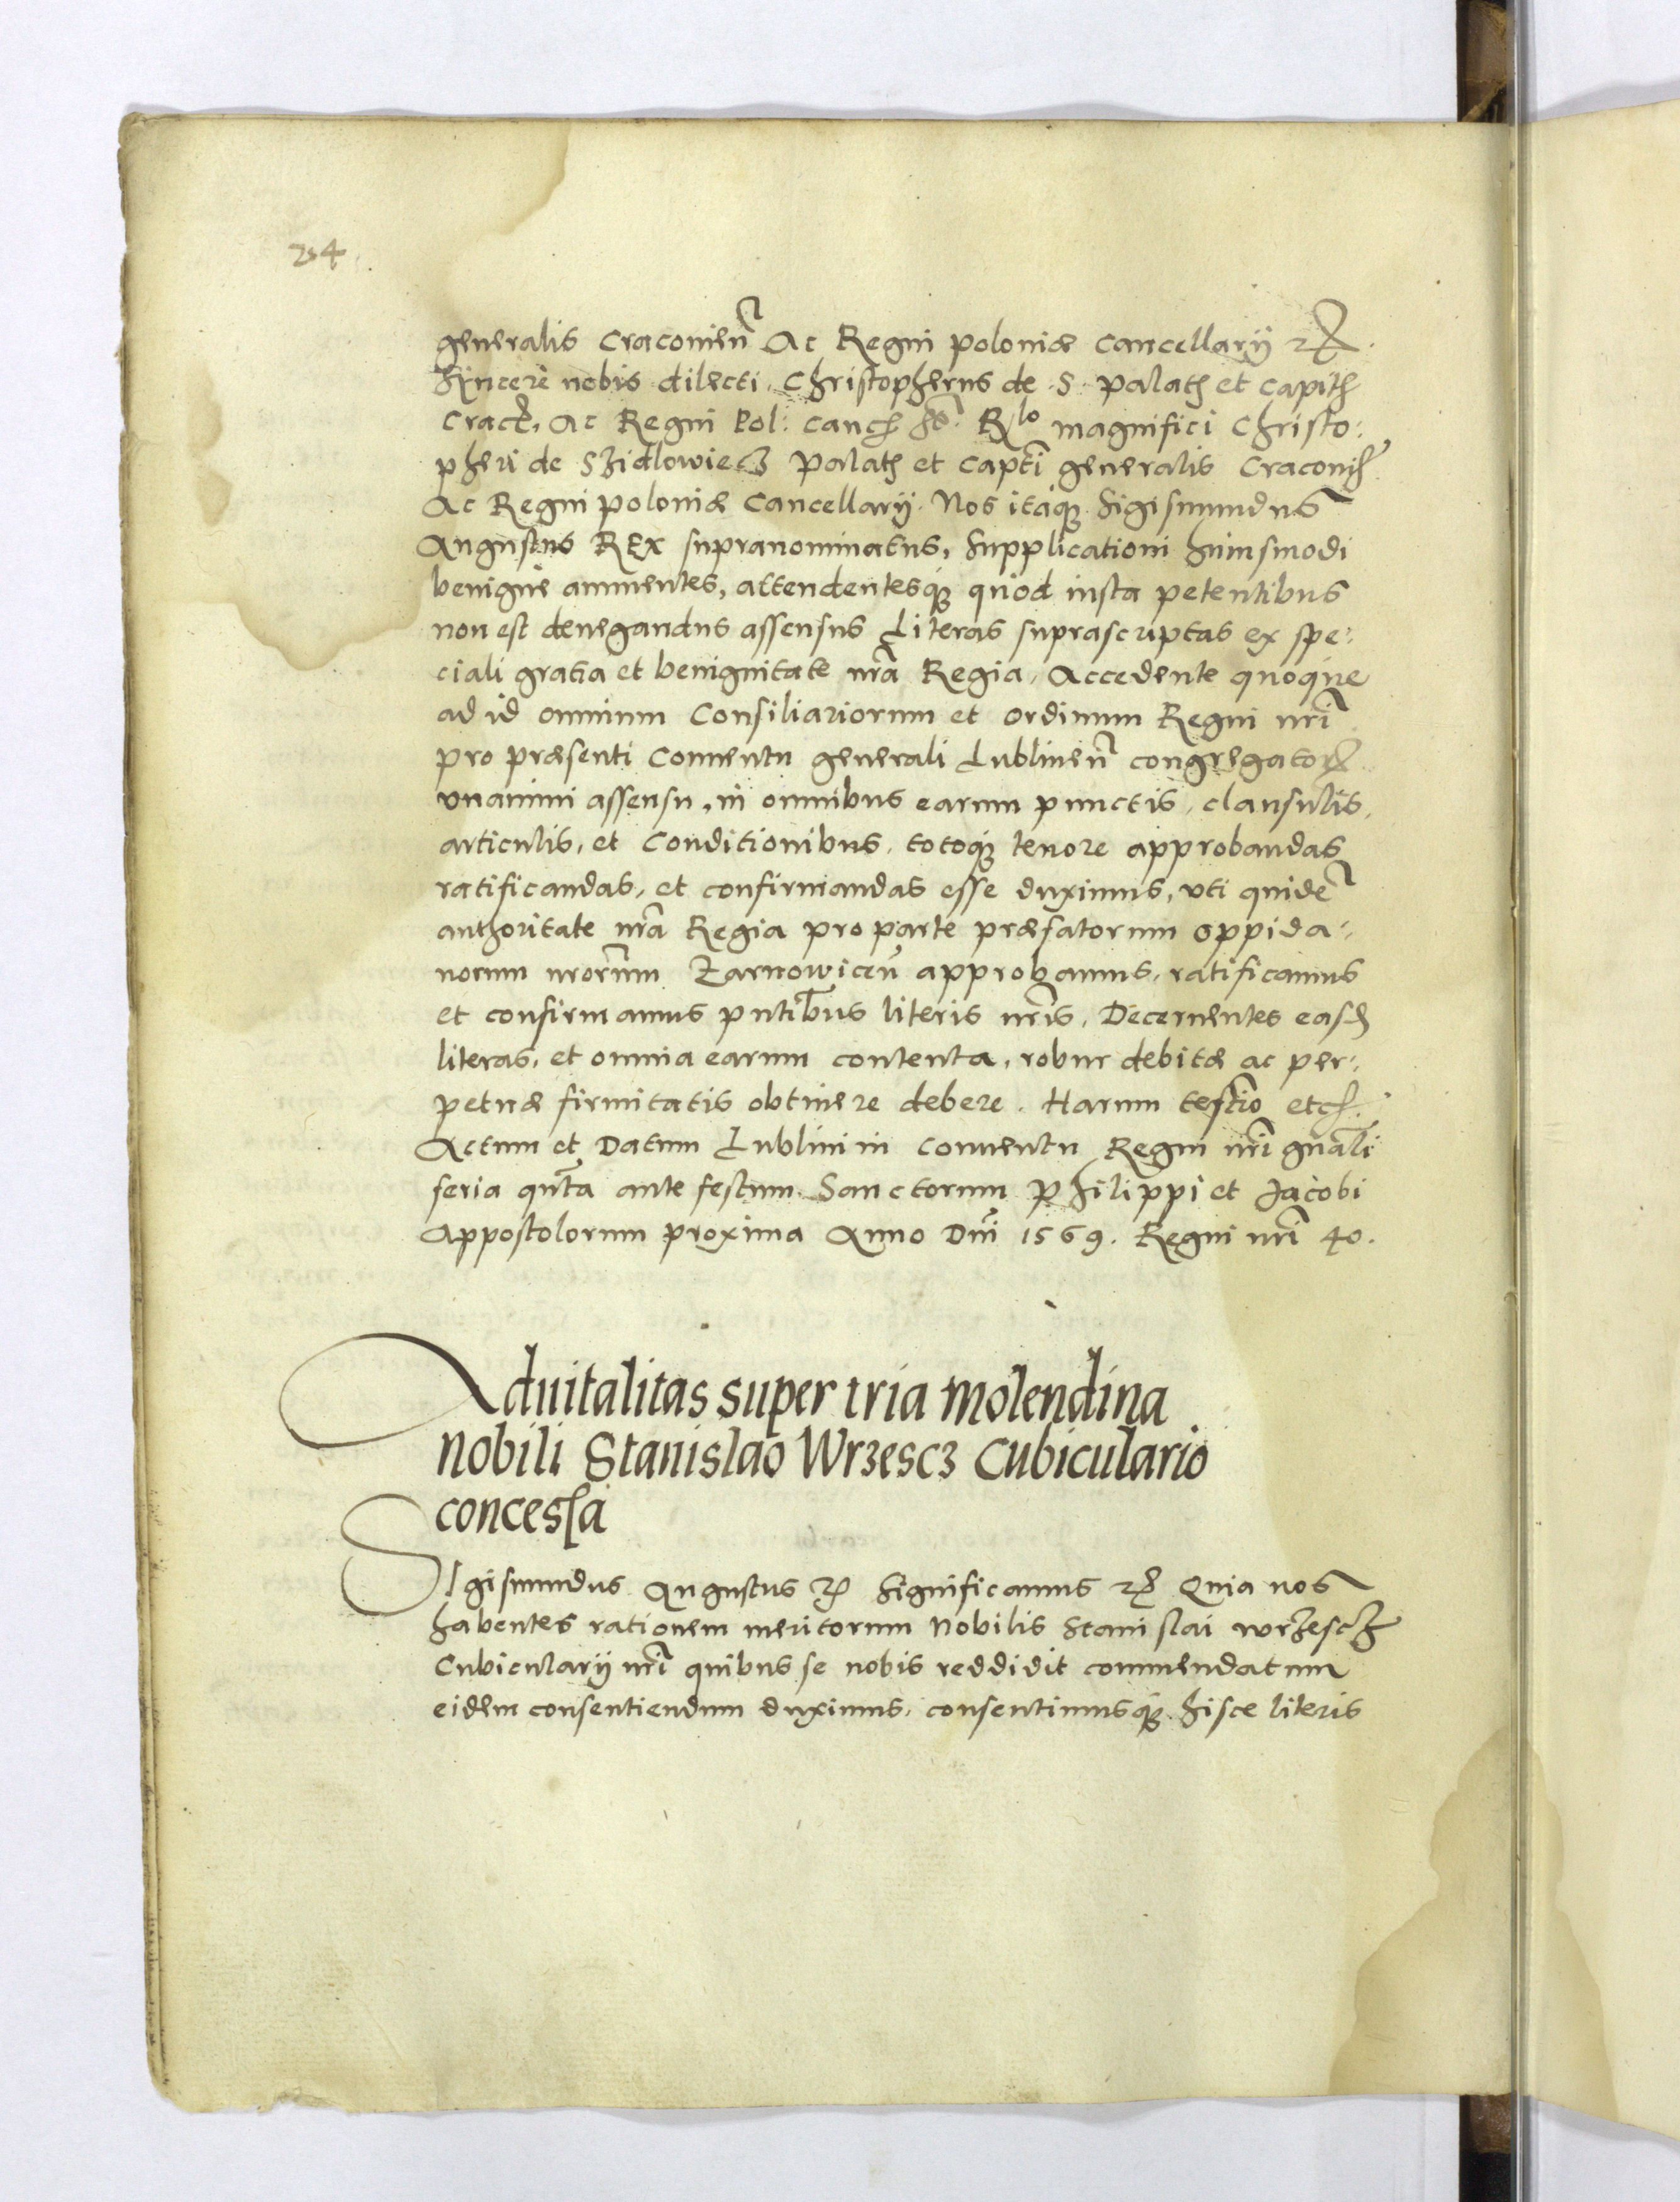 254
generalis Craconien̄ Ac Regni poloniæ Cancellarij etc.
sincerè nobis dilecti, Christopherus de S. Palath et Capith
Crac., Ac Regni Pol: Canc. ss. R^lo magnifici Christo:
pheri de Szidlowiecz Palath et Captī generalis Craconiēn
Ac Regni poloniæ Cancellarij. Nos itaq; Sigismundus
Augustus REx supranominatus, supplicationi huiusmodi
benignè annuentes, attendentesq; quòd iusta petentibus
non est denegandus assensus Literas suprascriptas ex spe:
ciali gratia et benignitate nrā Regia, Accedente quoque
ad id omnium Consiliariorum et ordinum Regni nrī
pro præsenti Conuentu generali Lublinen̄ congregatorꝝ
vnanimi assensu, in omnibus earum punctis, clausulis,
articulis, et Conditionibus, totoq; tenore approbandas
ratificandas, et confirmandas esse duximus, vti quidē
authoritate nrā Regia pro parte præfatorum oppida:
norum nrorūm Żarnowiceñ approbamus, ratificamus
et confirmamus pntībus literis nrīs, Decernentes easd.
literas, et omnia earum contenta, robur debitæ ac per:
petuæ firmitatis obtinere debere. Harum testīo etc.
Actum et Datum Lublini in Conuentu Regni nrī gnāli
feria qnta ante festum Sanctorum Philippi et Jacobi
Appostolorum proxima Anno Dnī 1569. Regni nrī 40.
Advitalitas super tria molendina
Nobili Stanislao Wrzescz Cubiculario
concessa
SIgismundus Augustus etc. Significamus etc. Quia nos
habentes rationem meritorum Nobilis Stanislai Wrzescz
Cubicularij nrī quibus se nobis reddidit commendatum
eidem consentiendum duximus, consentimusq; hisce literis